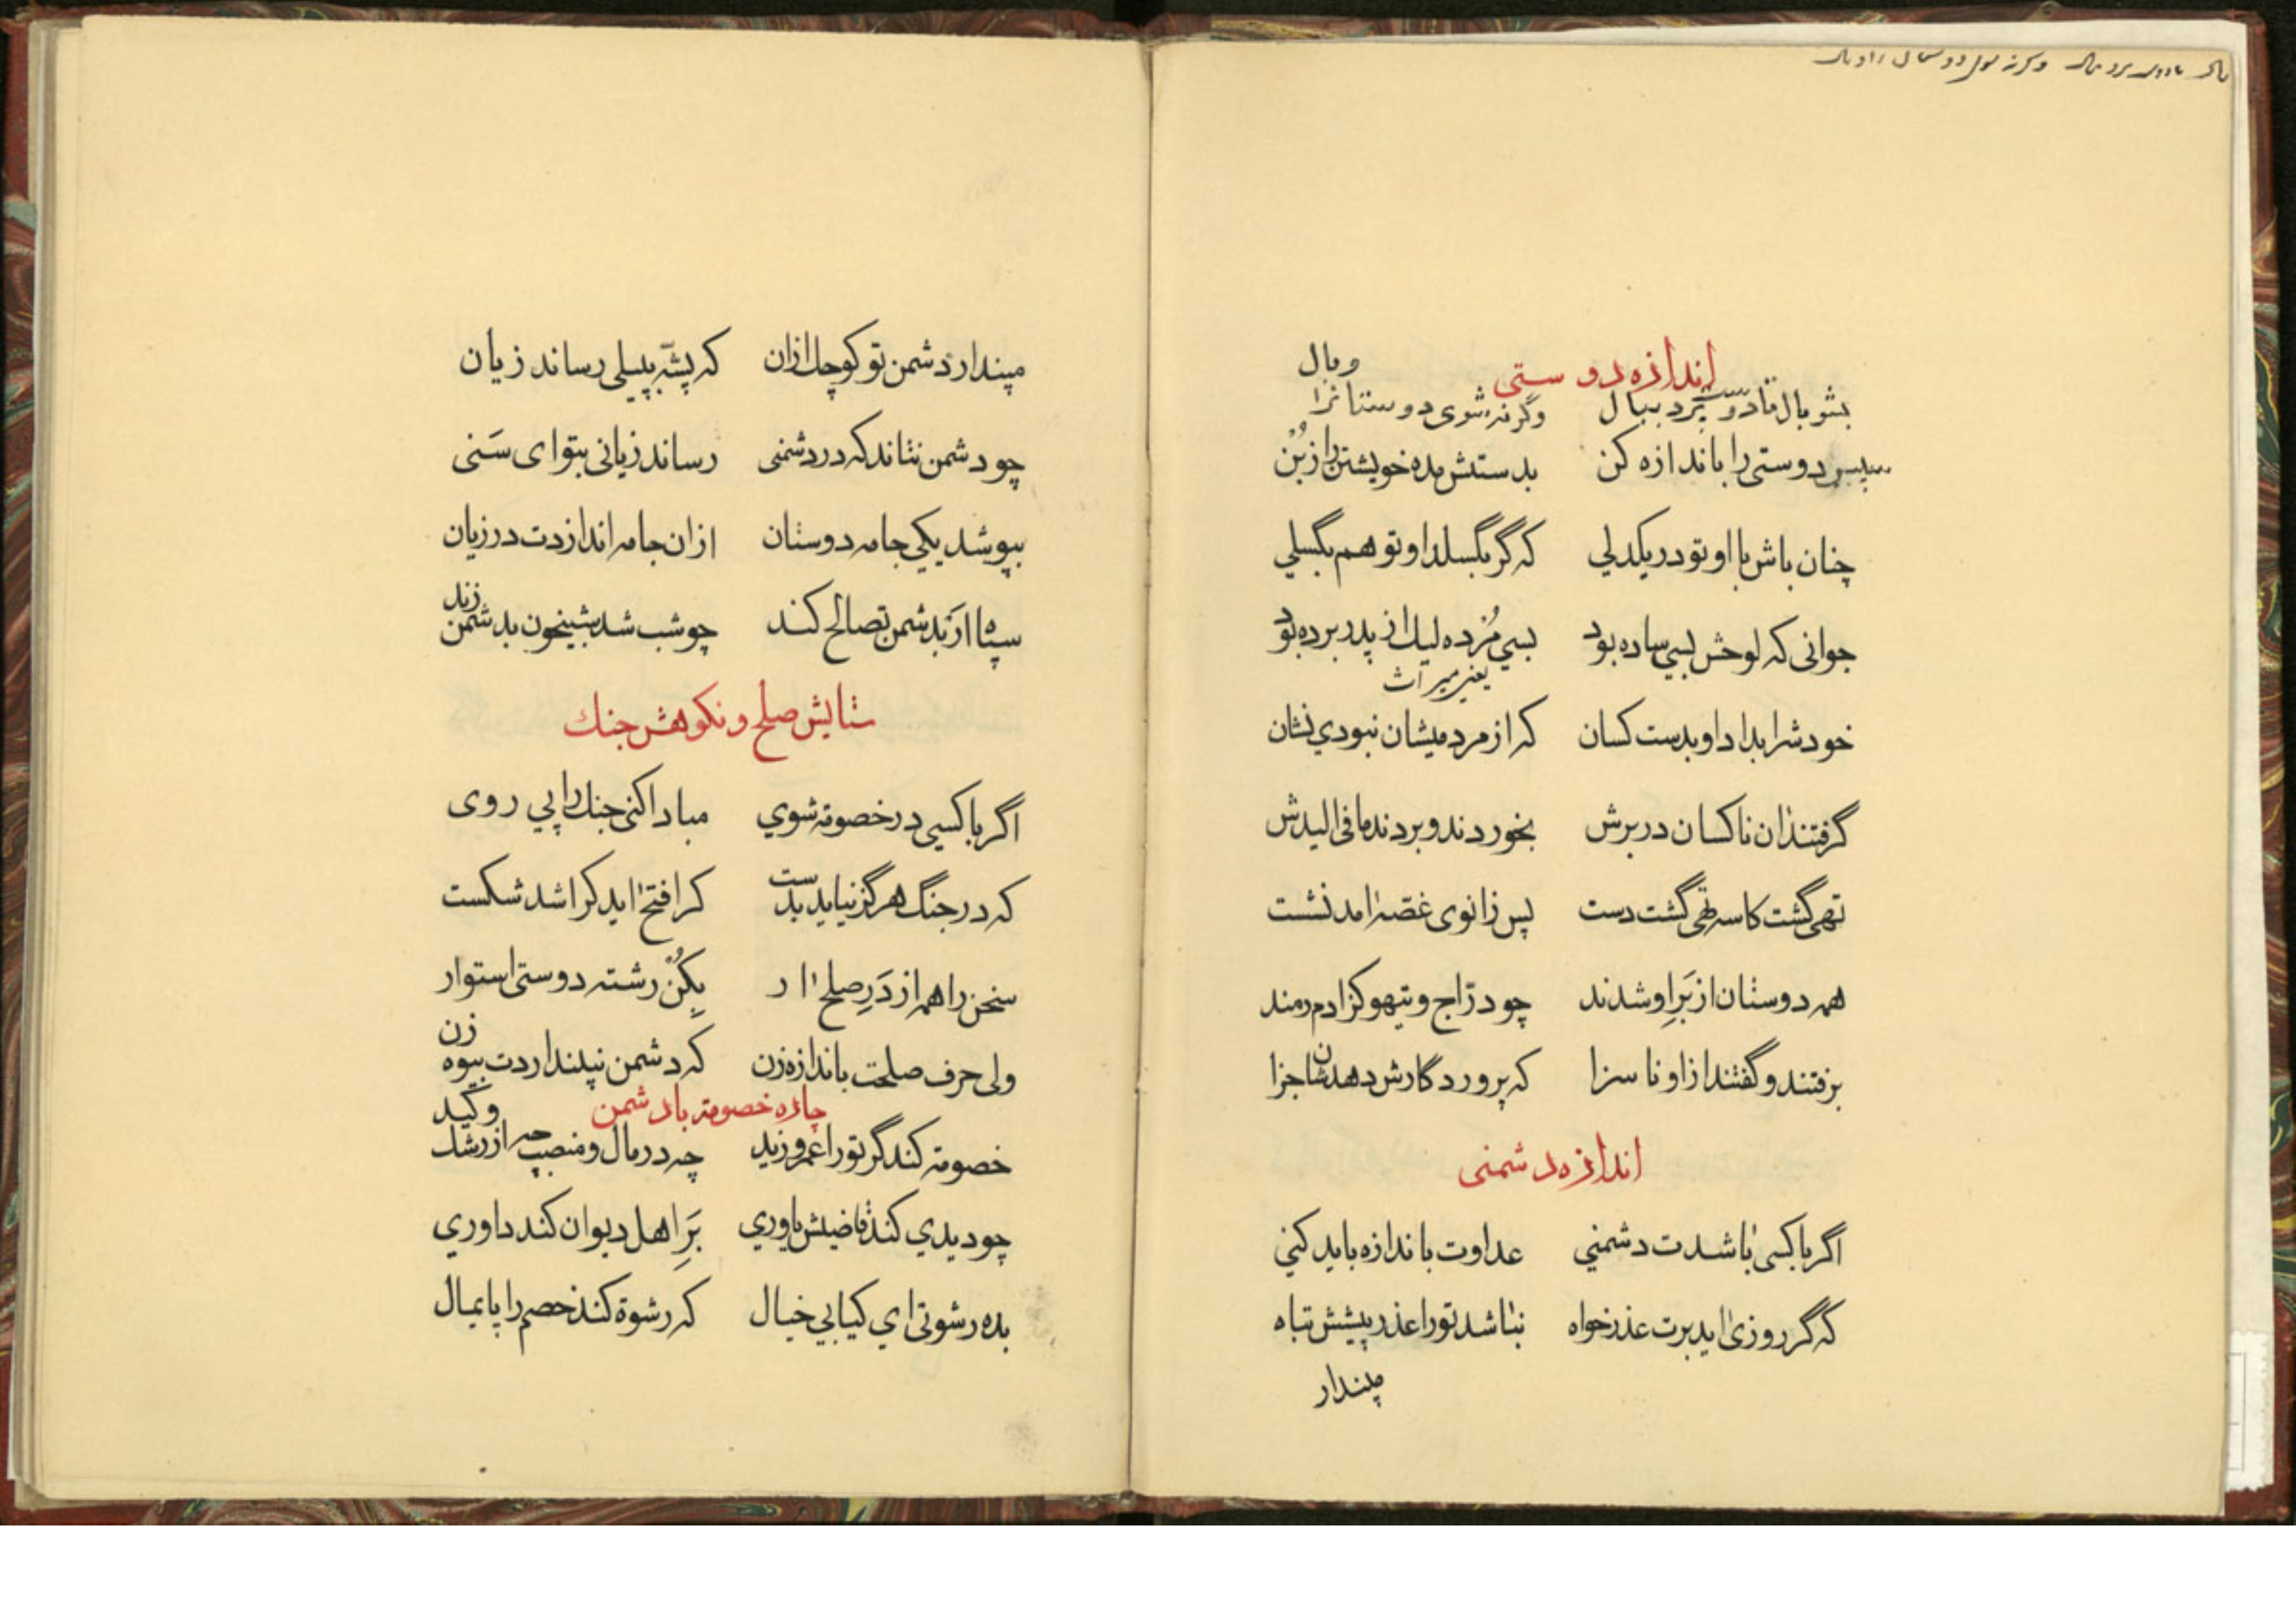 اندازه دوستی
بشو بال تا دوست پرد ببال وگرنه شوی دوستانرا وبال
سپس دوستی را باندازه کن بدستش مده خویشتن را ز بُن
چنان باش با او تو در یکدلي که گر بگسلد او تو هم بگسلي
جوانی که لوحش بسي ساده بود بسي مُرده لیك از پدر برده بود
یعنی میراث
خودشرا بداد او بدست کسان که از مردمیشان نبودي نشان
گرفتند آن ناکسان در برش بخوردند و بردند ما فی الیدش
تهی گشت کاسه تهی گشت دست پس زانوی غصه آمد نشست
همه دوستان از بَرِ او شدند چو درّاج و تیهو کز آدم رمند
برفتند و گفتند از او ناسزا که پروردگارش دهدشان جزا
اندازه دشمنی
اگر با کسی باشدت دشمني عداوت باندازه باید کني
که گر روزی آید برت عذرخواه نباشد تورا عذر پیشش تباه
مپندار
مپندار دشمن تو کوچك ازان که پشّه بپیلی رساند زیان
چو دشمن نتاند که در دشمنی رساند زیانی بتو ای سَنی
بپوشد یکي جامه دوستان ازان جامه اندازدت در زیان
سپاه ار بدشمن تصالح کند چو شب شد شبیخون بدشمن زند
ستایش صلح و نکوهش جنك
اگر با کسي در خصومة شوي مبادا کنی جنك را پي روی
که در جنگ هرگز نیاید بدست کرا فتح آید کرا شد شکست
سخن را هم از دَرِ صلح آر بکُن رشته دوستی استوار
ولی حرف صلحت باندازه زن که دشمن نپنداردت بیوه زن
چاره خصومة با دشمن
خصومة کند گر تورا عمرو و زید چه در مال و منصب چه از رشك و کید
چو دیدي کند قاضیش یاوري بَرِ اهل دیوان کند داوري
بده رشوتی اي کیا بي خیال که رشوة کند خصم را پایمال